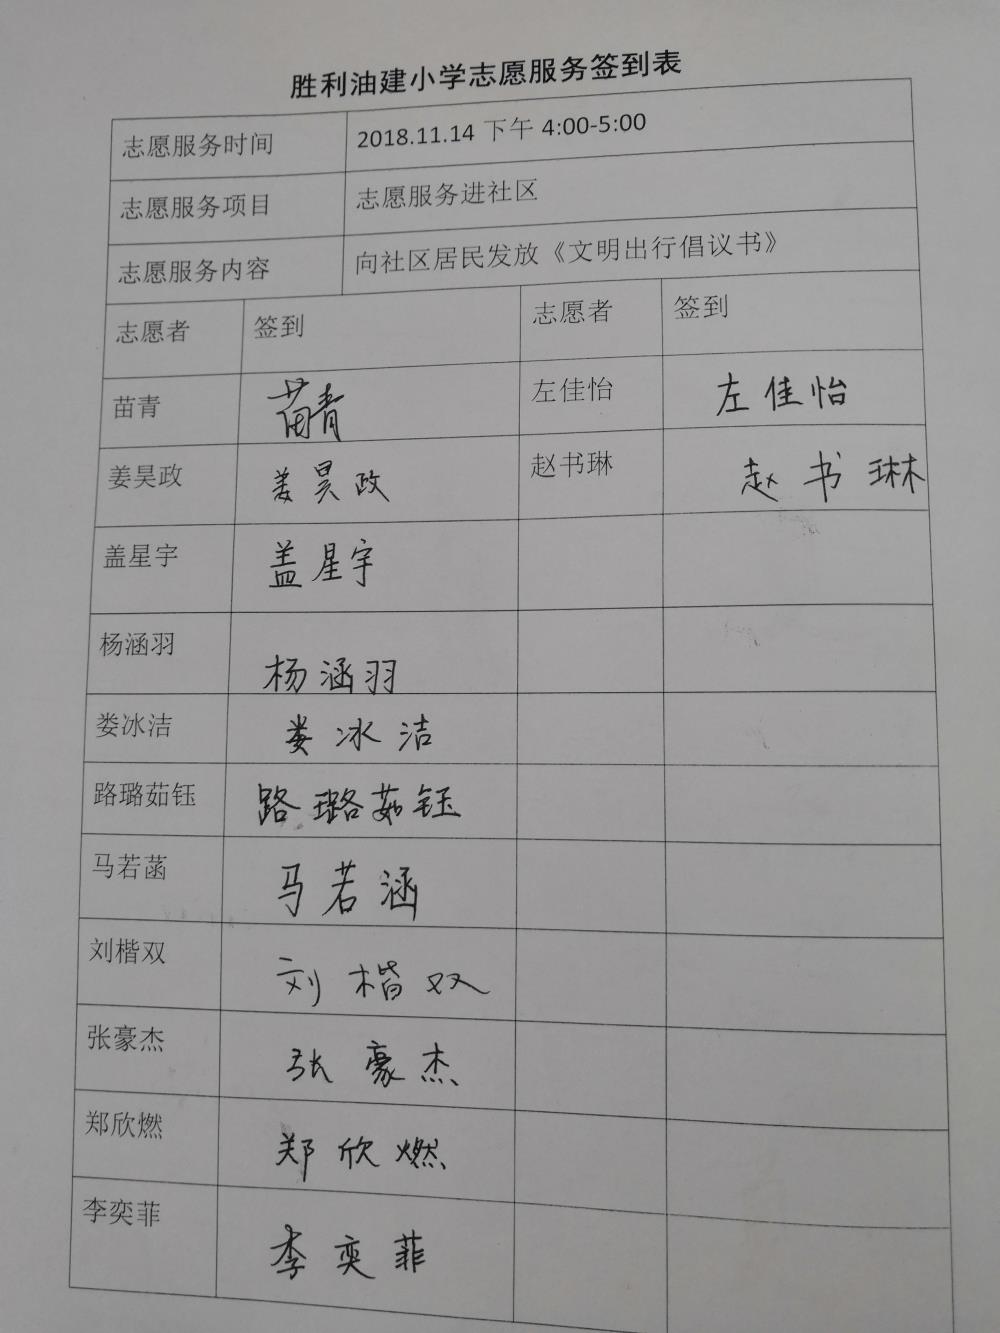 胜利油建小学志愿服务签到表
志愿服务时间 2018.11.14 下午 4:00-5:00
志愿服务项目 志愿服务进社区
志愿服务内容 向社区居民发放《文明出行倡议书》
志愿者 签到 志愿者 签到
苗青 苗青 左佳怡 左佳怡
姜昊政 姜昊政 赵书琳 赵书琳
盖星宇 盖星宇
杨涵羽 杨涵羽
娄冰洁 娄冰洁
路璐茹钰 路璐茹钰
马若菡 马若涵
刘楷双 刘楷双
张豪杰 张豪杰
郑欣燃 郑欣燃
李奕菲 李奕菲